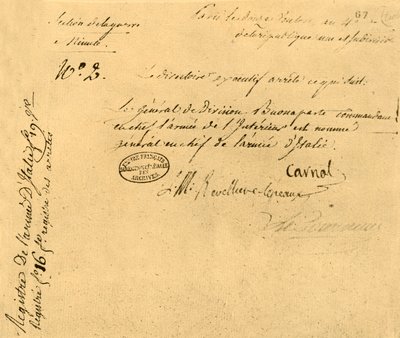 67
Section de la guerre
Paris, le douze Ventose, an 4e
de la république une et indivisible
Minute
No. 2.
Le directoire exécutif arrête ce qui suit.
Le Général de Division Buonaparte commandant
en chef l'armée de l'Intérieur est nommé
général en chef de l'armée d'Italie.
Carnot
L. M. Reveilliere-Lepeaux
ARCHIVES
Registre de l'armée D'Italie fo 19 Vo
Registre fo 16 Vo registre des arrêtés